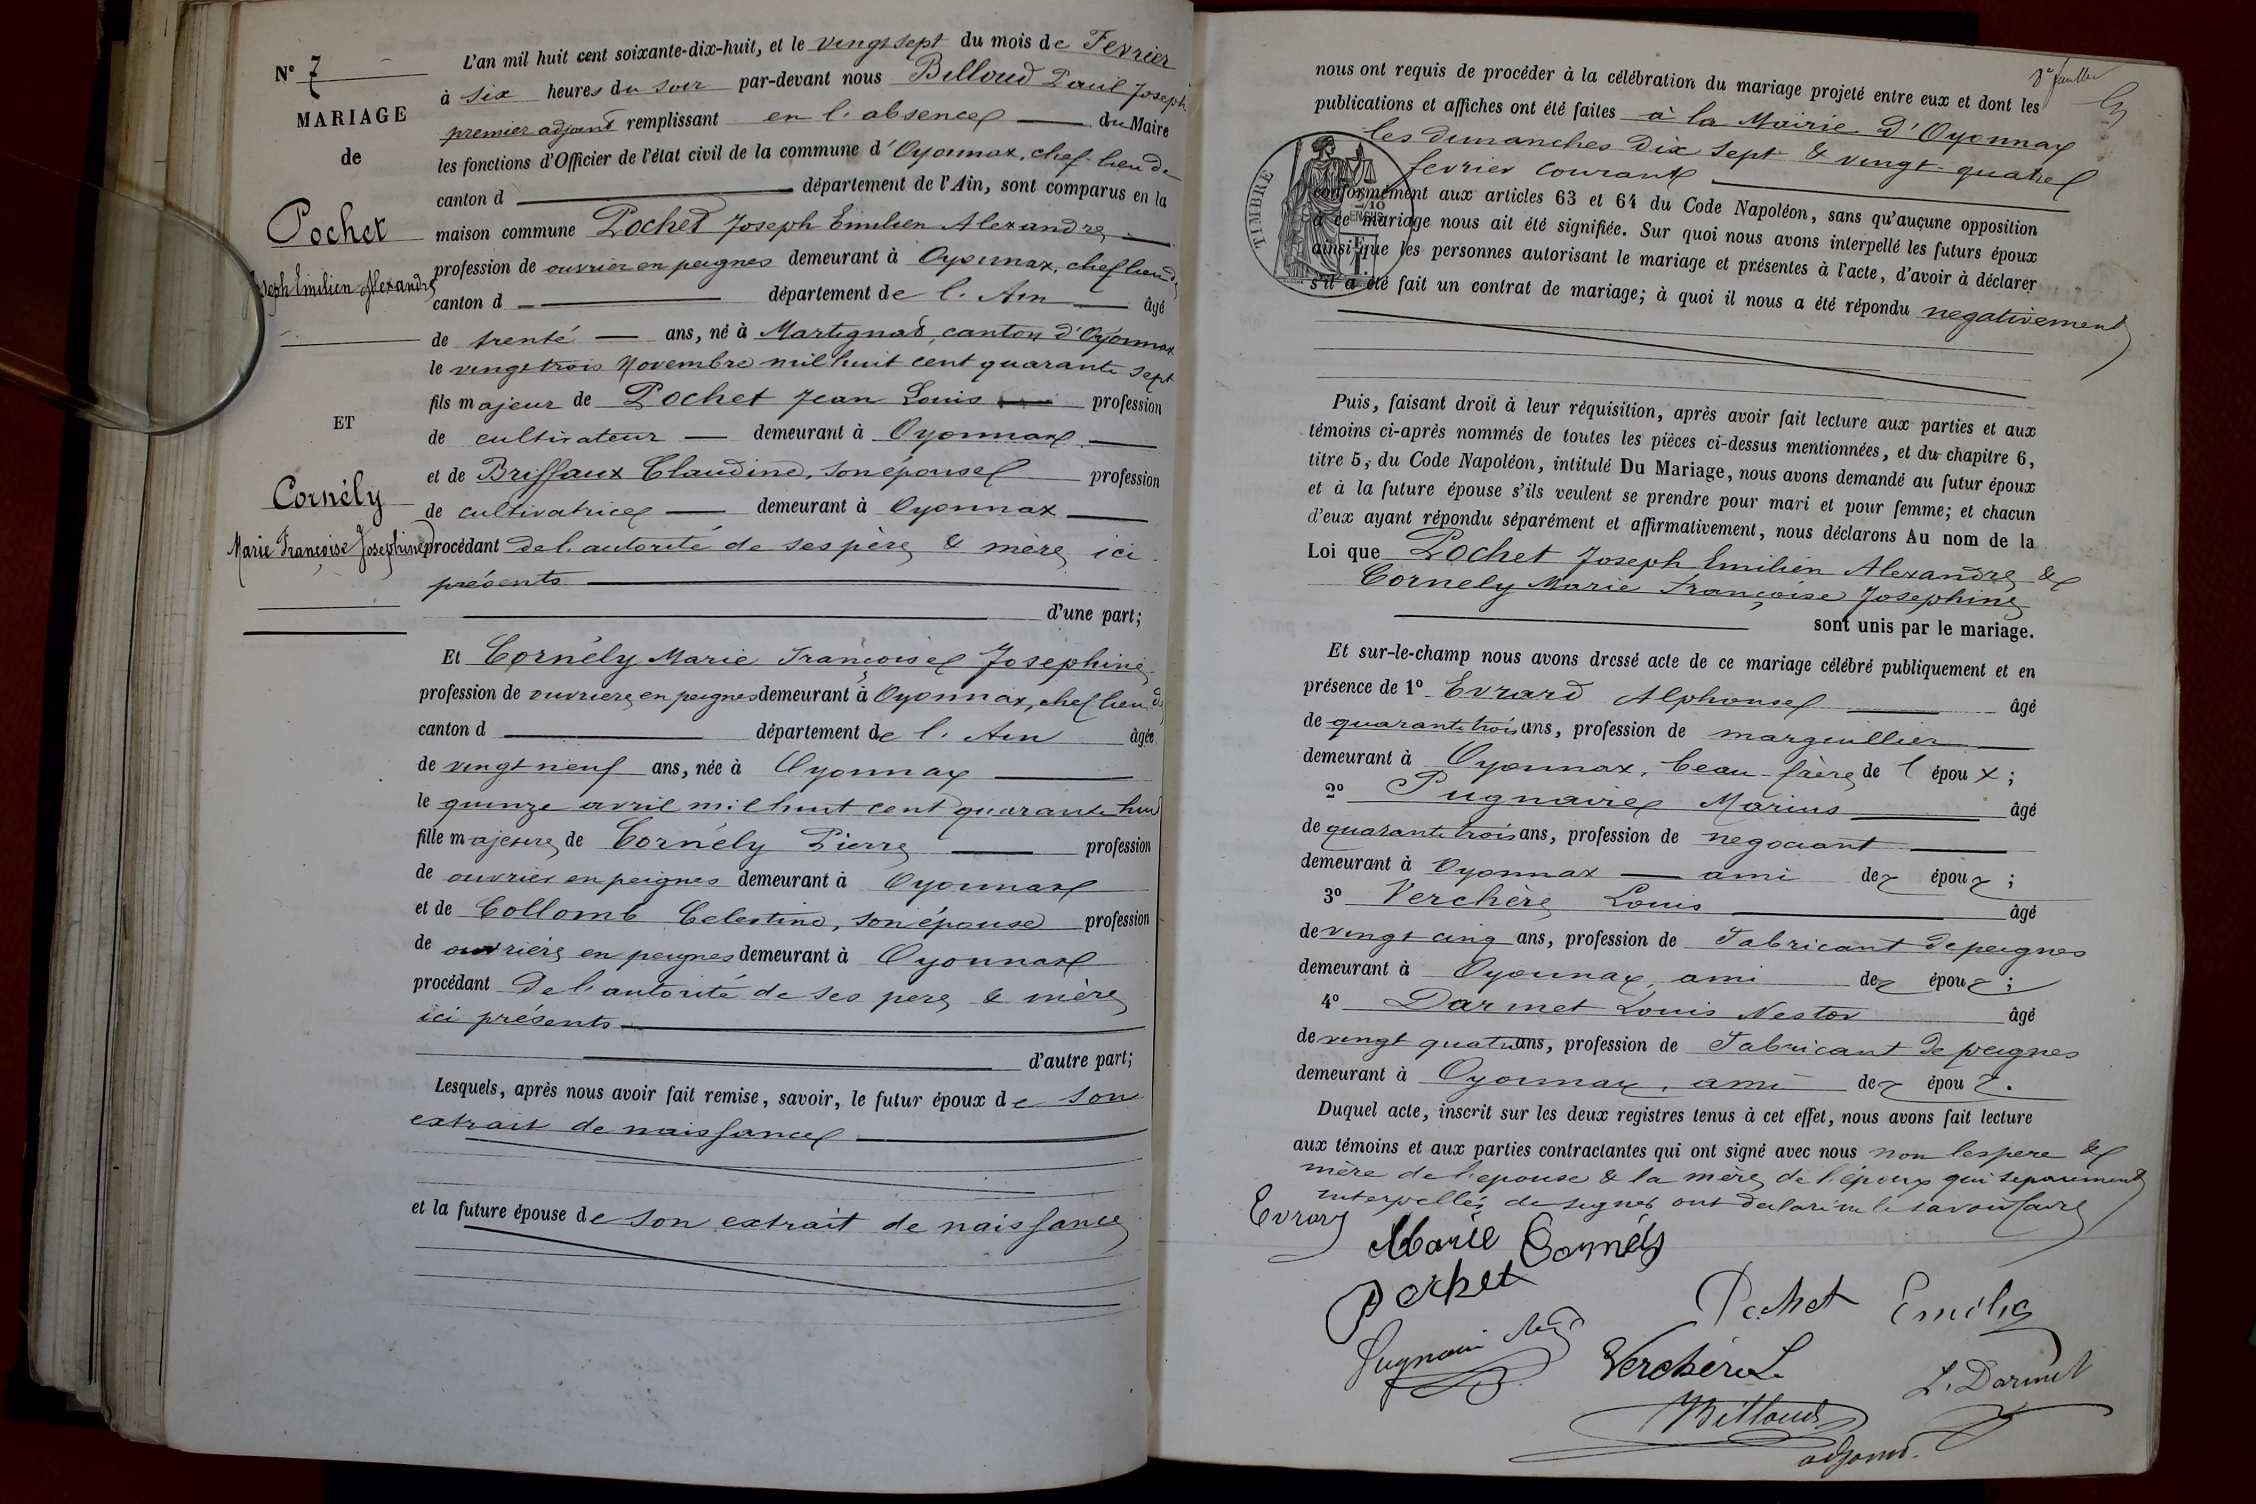 N° 7
MARIAGE
de
Pochet
Joseph Emilien Alexandre
ET
Cornély
Marie Françoise Josephine
L'an mil huit cent soixante-dix-huit, et le vingt sept du mois de Fevrier
à six heures du soir par-devant nous Billoud Paul Joseph
premier adjoint remplissant en l'absence du Maire
les fonctions d'Officier de l'état civil de la commune d'Oyonnax, chef-lieu de
canton d département de l'Ain, sont comparus en la
maison commune Pochet Joseph Emilien Alexandre
profession de ouvrier en peignes demeurant à Oyonnax, chef lieu de
canton d département de l'Ain âgé
de trente ans, né à Martignat, canton d'Oyonnax
le vingt trois Novembre mil huit cent quarante sept
fils majeur de Pochet Jean Louis profession
de cultivateur demeurant à Oyonnax
et de Briffaux Claudine, son épouse profession
de cultivatrice demeurant à Oyonnax
procédant de l'autorité de ses père & mère ici
présents
d'une part;
Et Cornély Marie Françoise Josephine
profession de ouvriere en peignes demeurant à Oyonnax, chef lieu de
canton d département de l'Ain âgée
de vingt neuf ans, née à Oyonnax
le quinze avril mil huit cent quarante huit
fille majeure de Cornély Pierre profession
de ouvrier en peignes demeurant à Oyonnax
et de Collomb Celestine, son épouse profession
de ouvrière en peignes demeurant à Oyonnax
procédant de l'autorité de ses pere & mère
ici présents
d'autre part;
Lesquels, après nous avoir fait remise, savoir, le futur époux de son
extrait de naissance
et la future épouse de son extrait de naissance
nous ont requis de procéder à la célébration du mariage projeté entre eux et dont les
publications et affiches ont été faites à la Mairie d'Oyonnax
les dimanches dix sept & vingt-quatre
fevrier courant
TIMBRE
conformément aux articles 63 et 64 du Code Napoléon, sans qu'aucune opposition
à ce mariage nous ait été signifiée. Sur quoi nous avons interpellé les futurs époux
ainsi que les personnes autorisant le mariage et présentes à l'acte, d'avoir à déclarer
s'il a été fait un contrat de mariage; à quoi il nous a été répondu negativement
Puis, faisant droit à leur réquisition, après avoir fait lecture aux parties et aux
témoins ci-après nommés de toutes les pièces ci-dessus mentionnées, et du chapitre 6,
titre 5, du Code Napoléon, intitulé Du Mariage, nous avons demandé au futur époux
et à la future épouse s'ils veulent se prendre pour mari et pour femme; et chacun
d'eux ayant répondu séparément et affirmativement, nous déclarons Au nom de la
Loi que Pochet Joseph Emilien Alexandre &
Cornely Marie Françoise Josephine
sont unis par le mariage.
Et sur-le-champ nous avons dressé acte de ce mariage célébré publiquement et en
présence de 1° Evrard Alphonse âgé
de quarante trois ans, profession de marguillier
demeurant à Oyonnax, beau-frère de l époux;
2° Pugnaire Marius âgé
de quarante trois ans, profession de negociant
demeurant à Oyonnax ami de épou ;
3° Verchère Louis âgé
de vingt cinq ans, profession de Fabricant de peignes
demeurant à Oyonnax, ami de épou ;
4° Darmet Louis Nestor âgé
de vingt quatre ans, profession de Fabricant de peignes
demeurant à Oyonnax, ami de épou .
Duquel acte, inscrit sur les deux registres tenus à cet effet, nous avons fait lecture
aux témoins et aux parties contractantes qui ont signé avec nous non les pere &
mère de l'epouse & la mère de l'époux qui separement
interpellés de signer ont declaré ne le savoir faire
Evrard
Marie Cornély
Pochet
Pochet Emilien
Pugnaire
Verchère L.
L. Darmet
Billoud
adjoint.